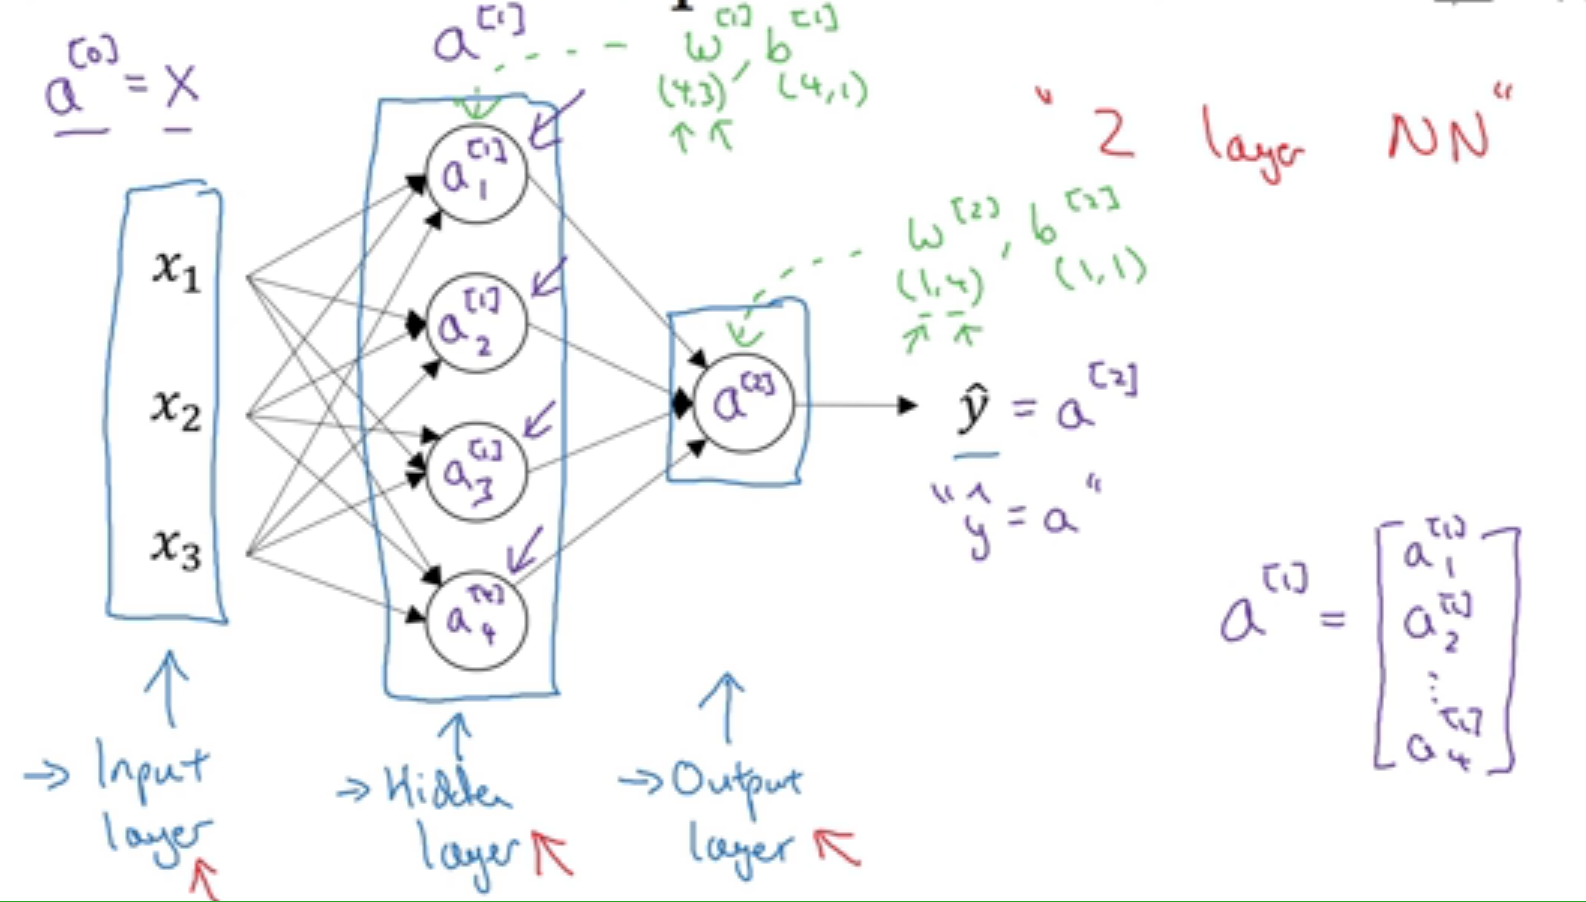 a^[0] = X
a^[1]
w^[1], b^[1]
(4,3) (4,1)
"2 layer NN"
x₁
x₂
x₃
a₁^[1]
a₂^[1]
a₃^[1]
w^[2], b^[2]
(1,4) (1,1)
a^[2]
ŷ = a^[2]
"ŷ = a"
a^[1] =
a₁^[1]
a₂^[1]
...
a₄^[1]
→ Input
layer
→ Hidden
layer
→ Output
layer